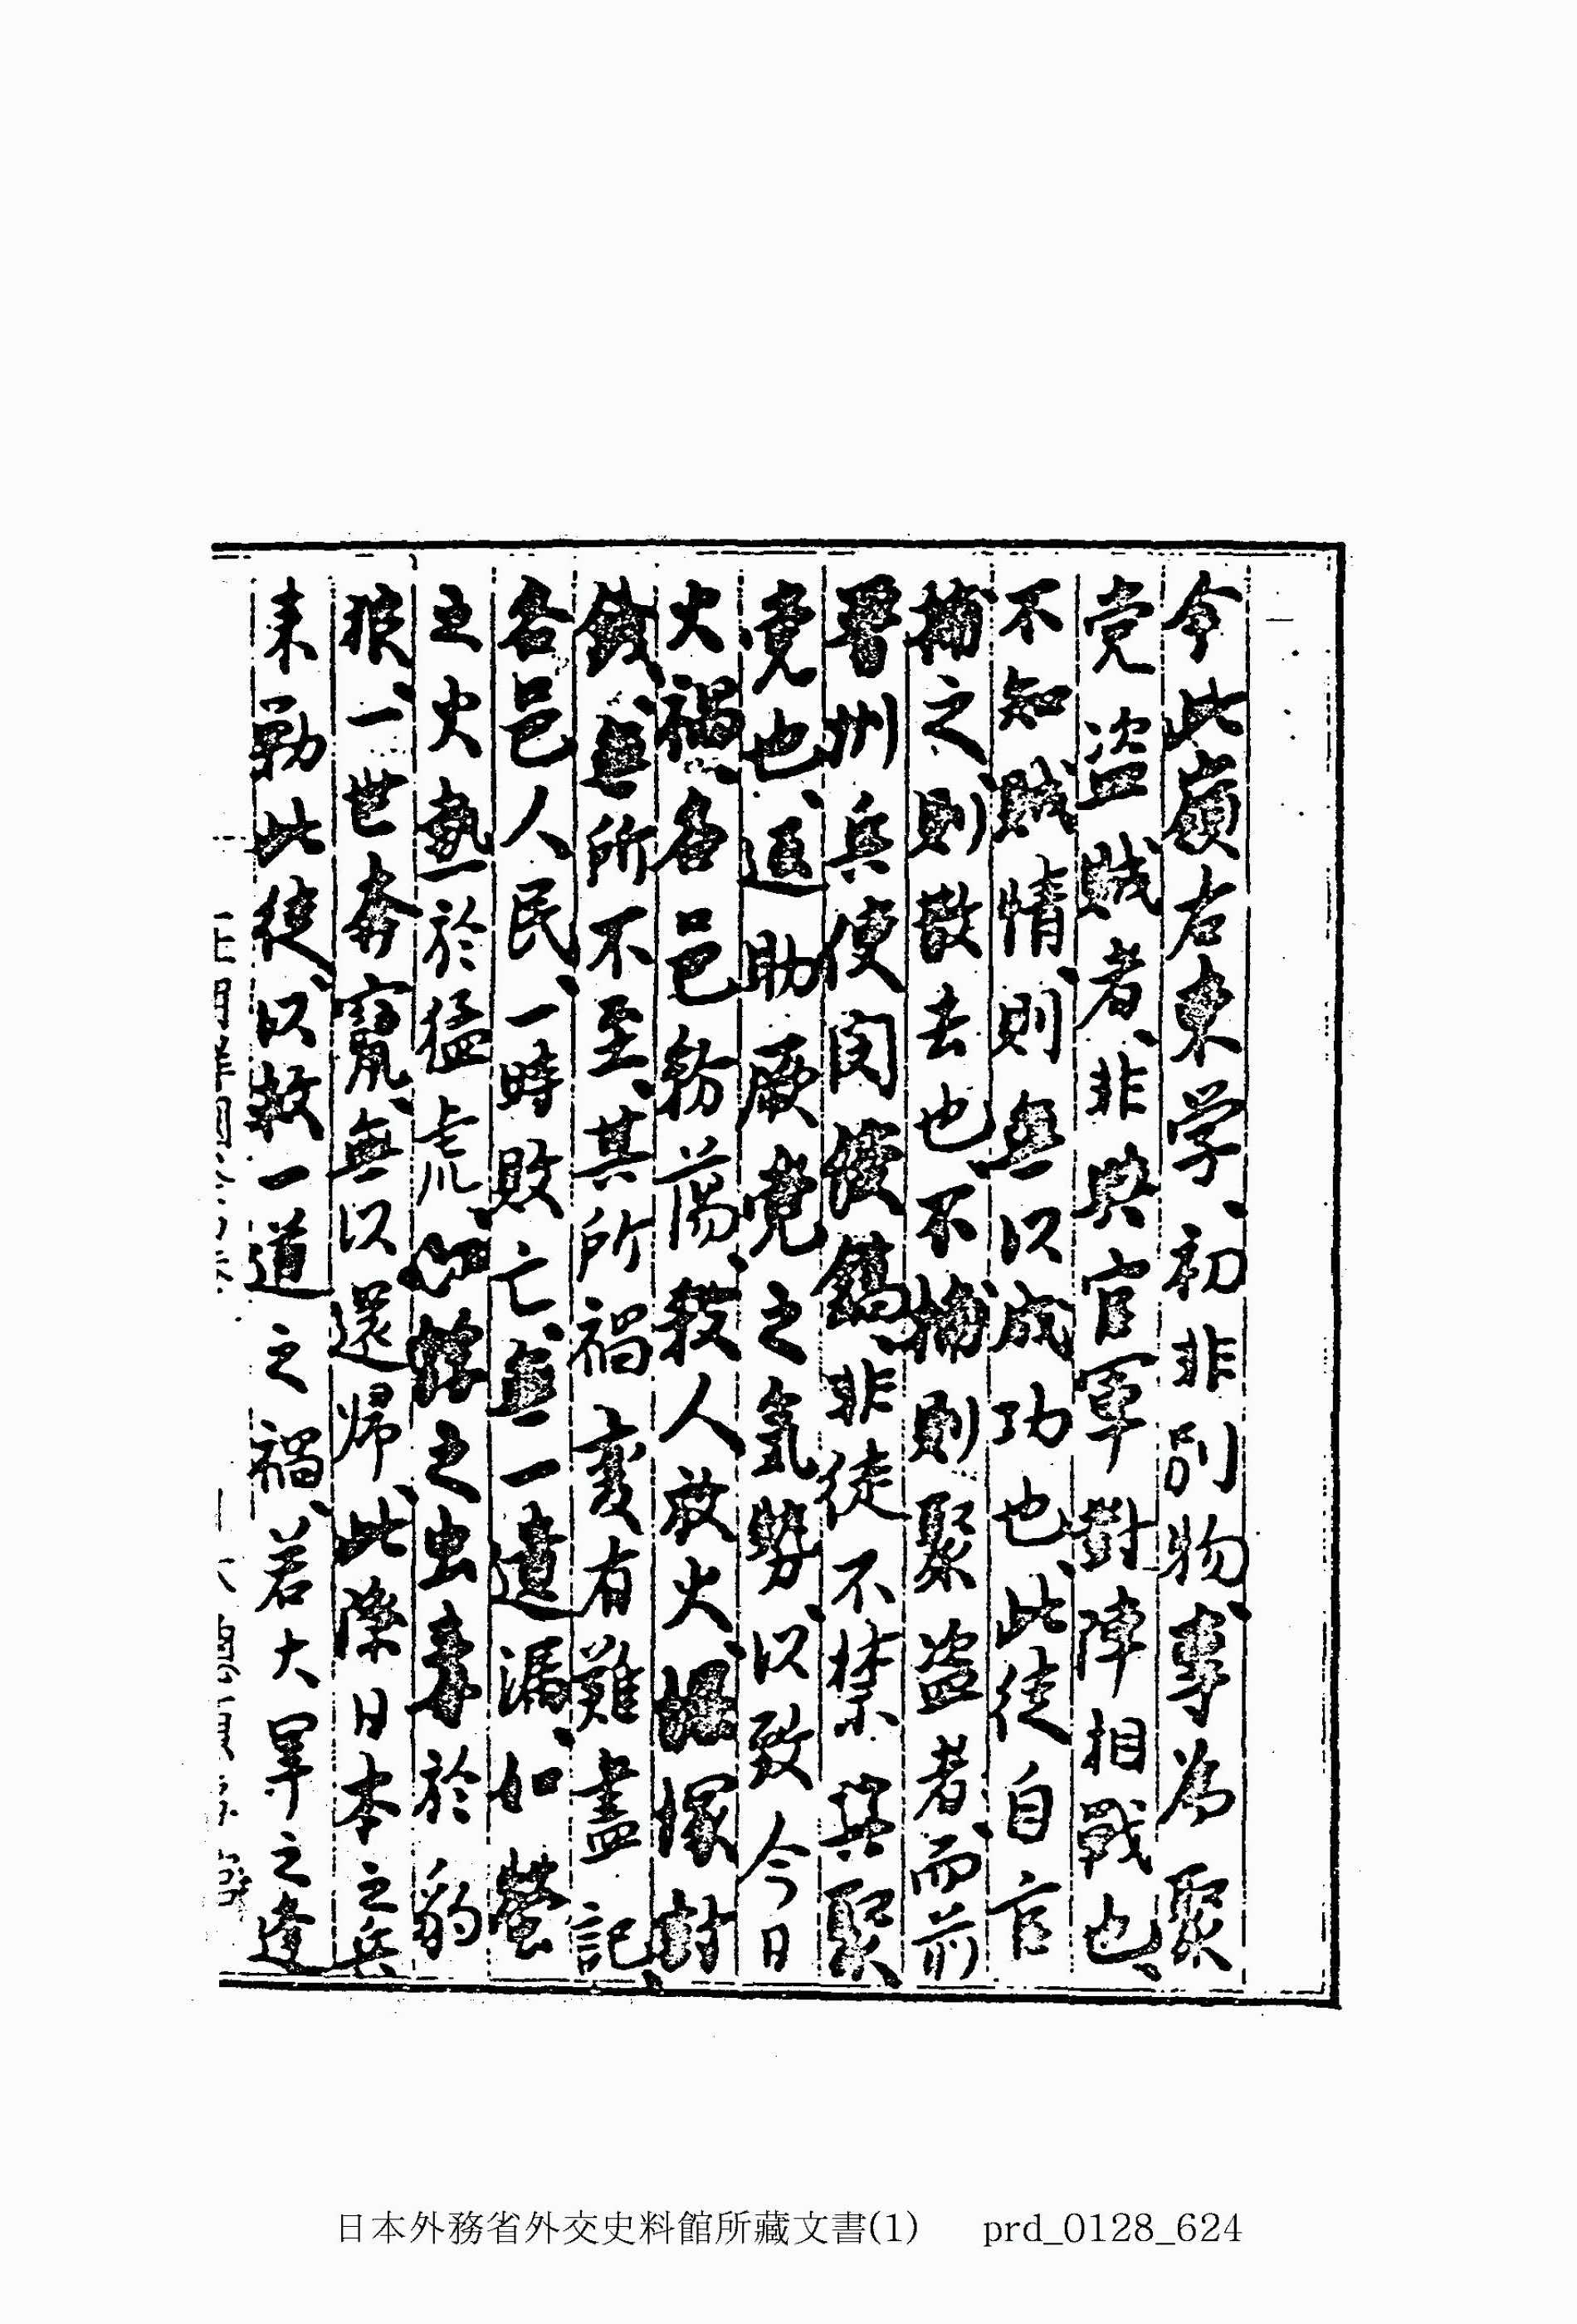 今此嶺右東学、初非別物、事為聚
党盗賊者、非與官軍對陣相戰也、
不知賊情、則無以成功也、此徒自官
捕之、則散去也、不捕則聚盗者、而前
晋州兵使閔俊鎬、非徒不禁其聚
党也、直助厥党之氣勢、以致今日
大禍、各邑務蕩、殺人放火、掘塚討
錢、無所不至、其所禍変有難盡記、
各邑人民、一時敗亡、無一遺漏、如螢
之火熱於猛虎、之虫毒於豹
狼、一世奔竄、無以還歸、此際日本之兵
来勦此徒、以救一道之禍、若大旱之逢
日本外務省外交史料館所藏文書(1) prd_0128_624